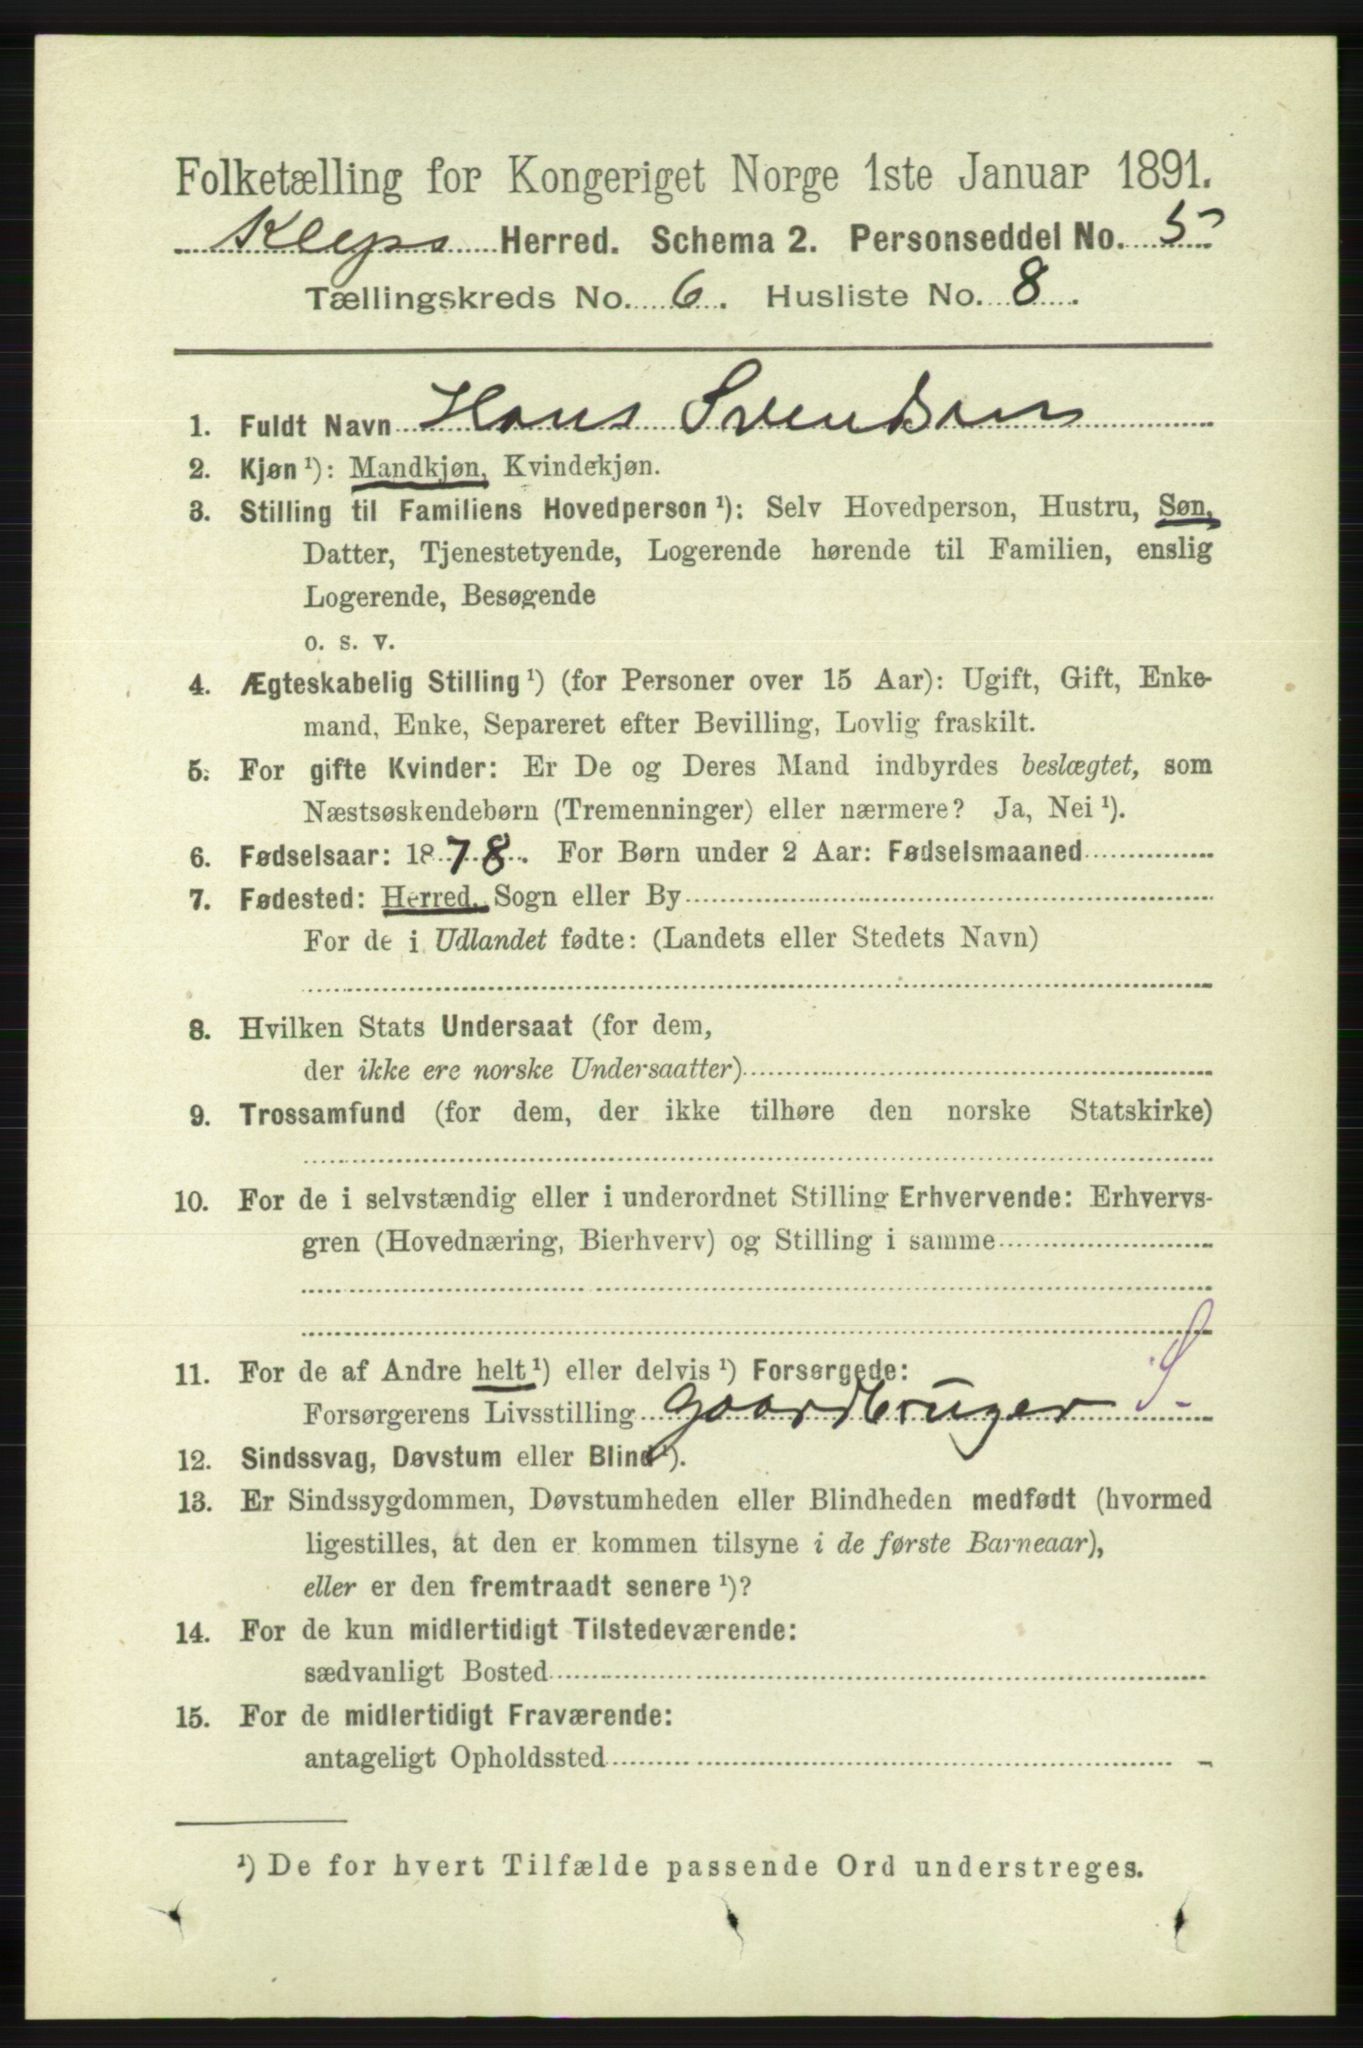 Folketælling for Kongeriget Norge 1ste Januar 1891.
Klepp Herred. Schema 2. Personseddel No. 5
Tællingskreds No. 6. Husliste No. 8.
1. Fuldt Navn Hans Svendsen
2. Kjøn ¹): Mandkjøn, Kvindekjøn.
3. Stilling til Familiens Hovedperson ¹): Selv Hovedperson, Hustru, Søn,
Datter, Tjenestetyende, Logerende hørende til Familien, enslig
Logerende, Besøgende
o. s. v.
4. Ægteskabelig Stilling ¹) (for Personer over 15 Aar): Ugift, Gift, Enke-
mand, Enke, Separeret efter Bevilling, Lovlig fraskilt.
5. For gifte Kvinder: Er De og Deres Mand indbyrdes beslægtet, som
Næstsøskendebørn (Tremenninger) eller nærmere? Ja, Nei ¹).
6. Fødselsaar: 1878. For Børn under 2 Aar: Fødselsmaaned
7. Fødested: Herred, Sogn eller By
For de i Udlandet fødte: (Landets eller Stedets Navn)
8. Hvilken Stats Undersaat (for dem,
der ikke ere norske Undersaatter)
9. Trossamfund (for dem, der ikke tilhøre den norske Statskirke)
10. For de i selvstændig eller i underordnet Stilling Erhvervende: Erhvervs-
gren (Hovednæring, Bierhverv) og Stilling i samme
11. For de af Andre helt ¹) eller delvis ¹) Forsørgede:
Forsørgerens Livsstilling Gaardbruger S.
12. Sindssvag, Døvstum eller Blind ¹).
13. Er Sindssygdommen, Døvstumheden eller Blindheden medfødt (hvormed
ligestilles, at den er kommen tilsyne i de første Barneaar),
eller er den fremtraadt senere ¹)?
14. For de kun midlertidigt Tilstedeværende:
sædvanligt Bosted
15. For de midlertidigt Fraværende:
antageligt Opholdssted
¹) De for hvert Tilfælde passende Ord understreges.